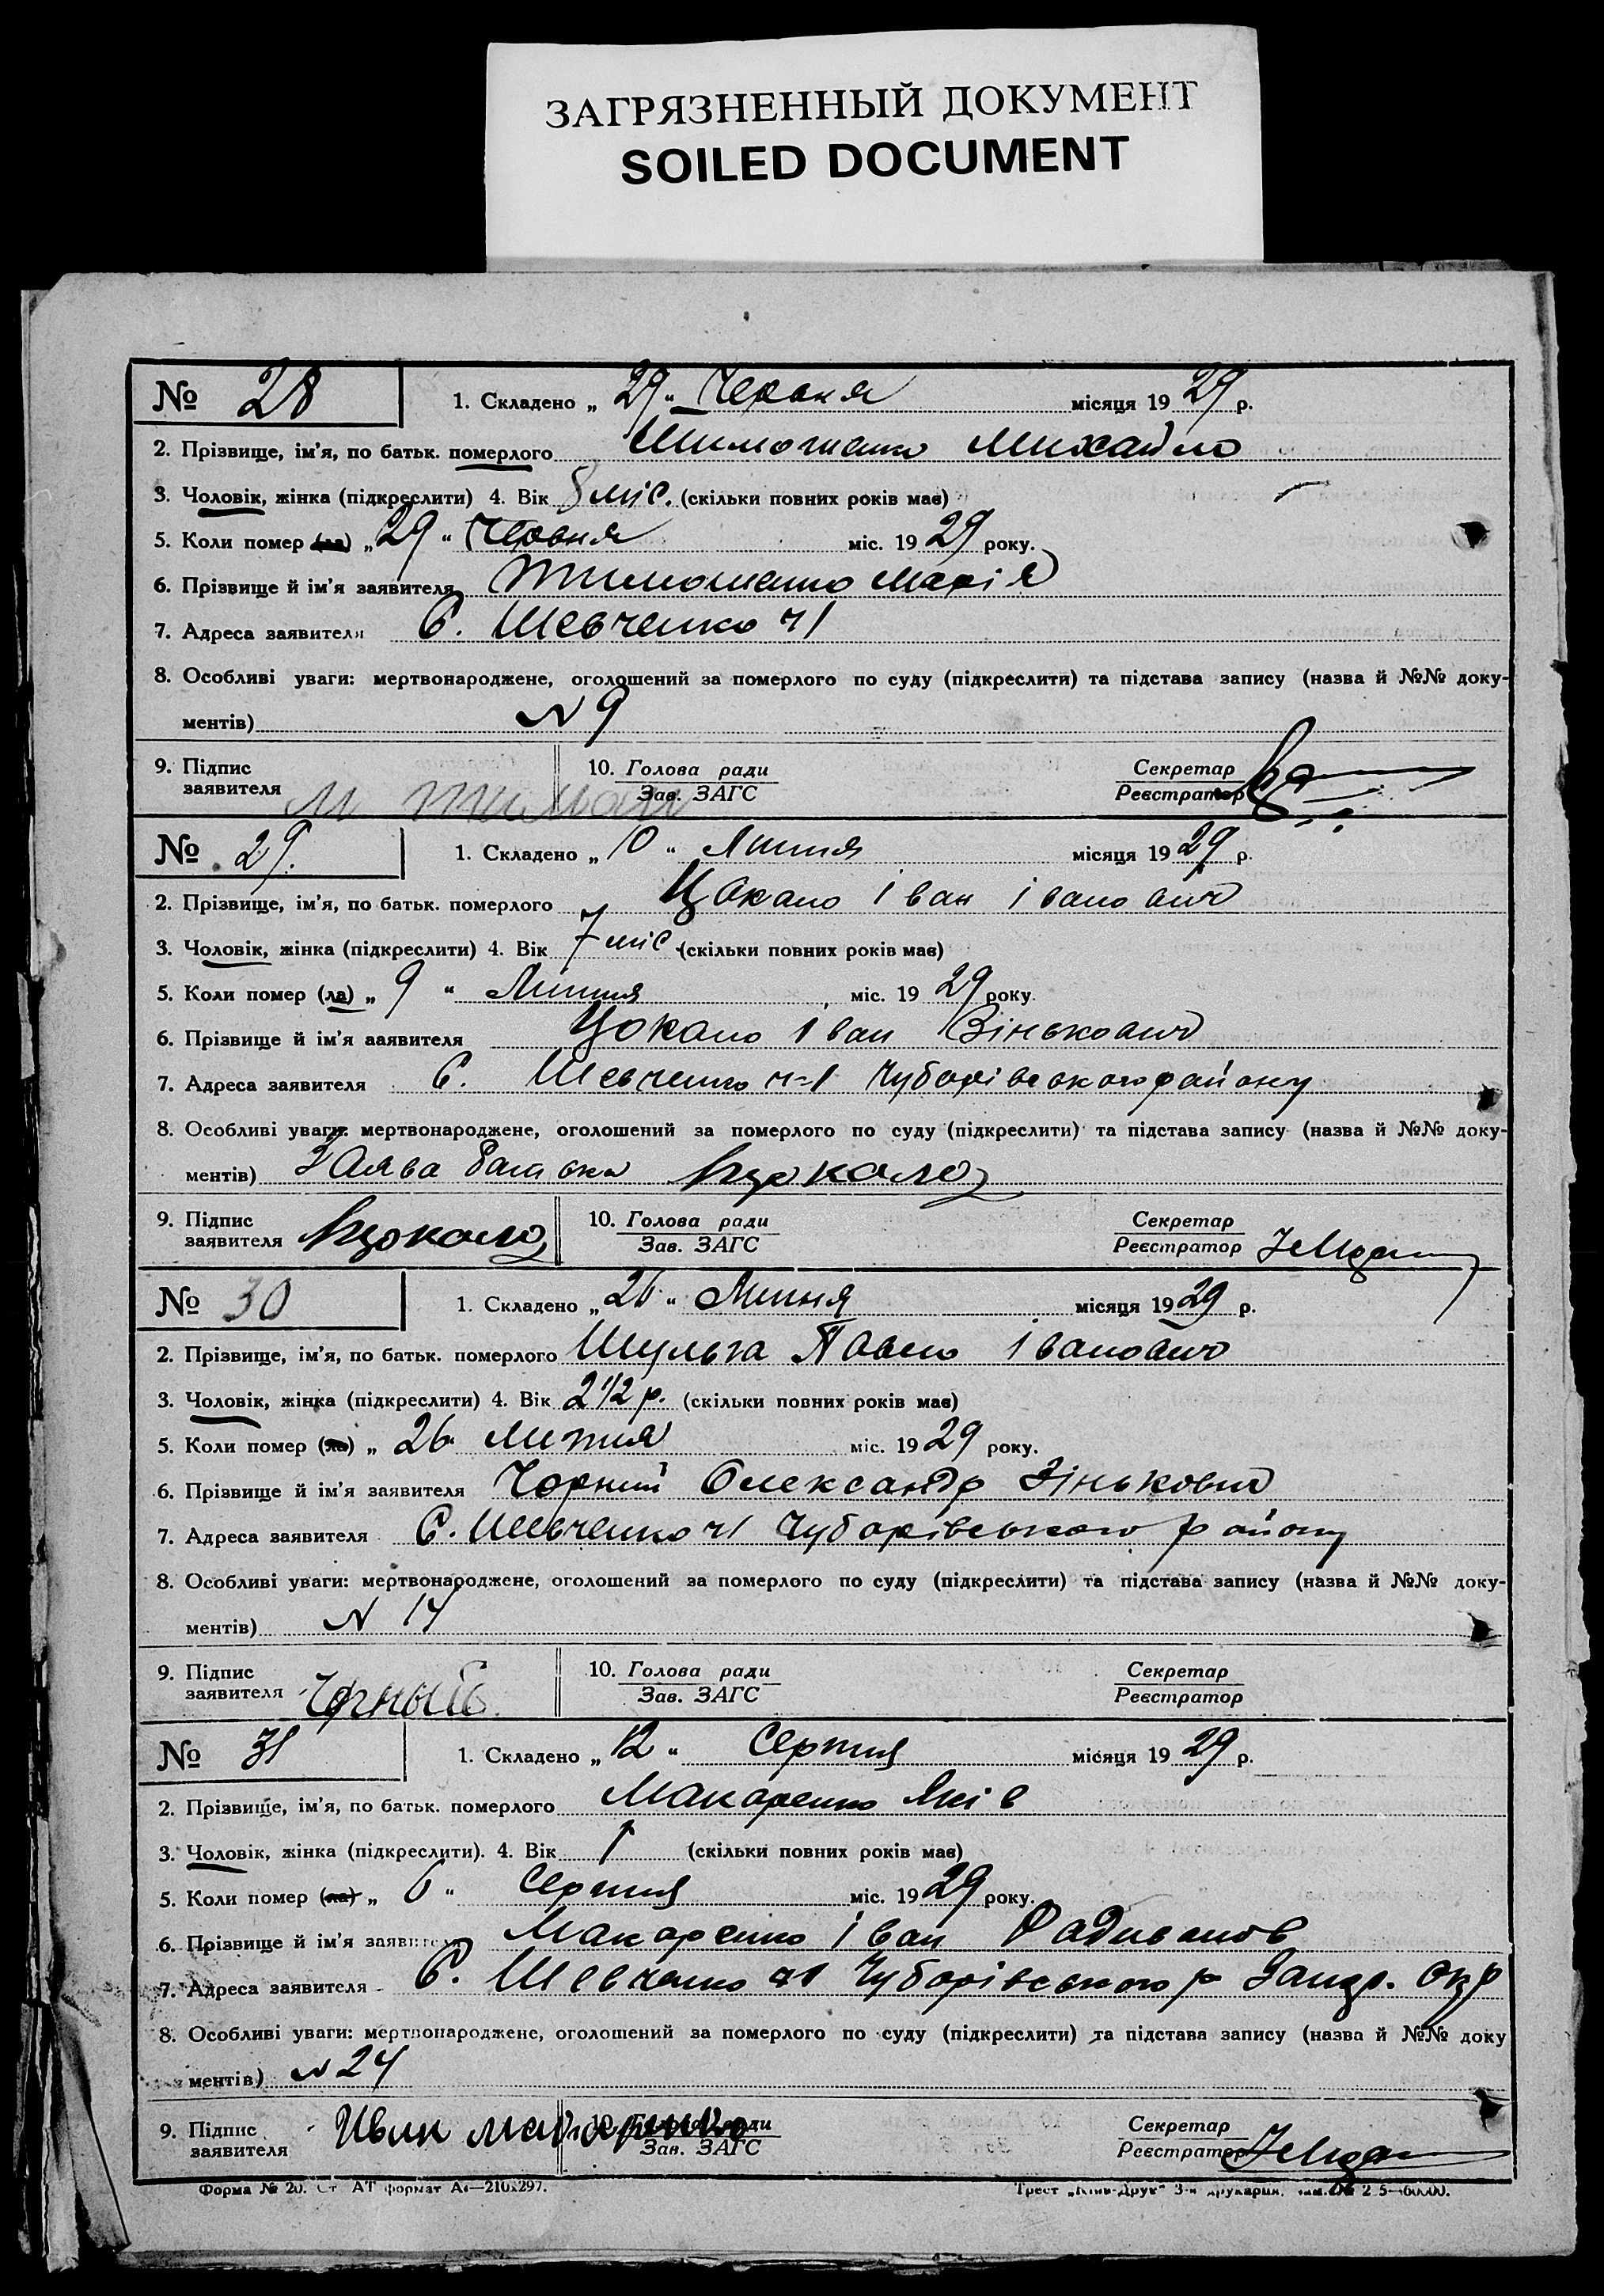 ЗАГРЯЗНЕННЫЙ ДОКУМЕНТ
SOILED DOCUMENT
№ 28 1. Складено „ 29 " Червня місяця 1929 р.
2. Прізвище, ім'я, по батьк. померлого Тимошенко Михайло
3. Чоловік, жінка (підкреслити) 4. Вік 8 міс. (скільки повних років має)
5. Коли помер (ла) „ 29 " Червня міс. 1929 року.
6. Прізвище й ім'я заявителя Тимошенко Марія
7. Адреса заявителя С. Шевченко ч1
8. Особливі уваги: мертвонароджене, оголошений за померлого по суду (підкреслити) та підстава запису (назва й №№ доку-
ментів) N 9
9. Підпис 10. Голова ради Секретар
заявителя М Зав. ЗАГС Реєстратор
№ 29. 1. Складено „ 10 " Липня місяця 1929 р.
2. Прізвище, ім'я, по батьк. померлого Цокало Іван Іванович
3. Чоловік, жінка (підкреслити) 4. Вік 7 міс. (скільки повних років має)
5. Коли помер (ла) „ 9 " Липня міс. 1929 року.
6. Прізвище й ім'я заявителя Цокало Іван Зінькович
7. Адреса заявителя С. Шевченко ч-1 Чубарівського району
8. Особливі уваги: мертвонароджене, оголошений за померлого по суду (підкреслити) та підстава запису (назва й №№ доку-
ментів) Заява батька Іцокало
9. Підпис 10. Голова ради Секретар
заявителя Іцокало Зав. ЗАГС Реєстратор
№ 30 1. Складено „ 26 " Липня місяця 1929 р.
2. Прізвище, ім'я, по батьк. померлого Шульга Павло Іванович
3. Чоловік, жінка (підкреслити) 4. Вік 2 1/2 р. (скільки повних років має)
5. Коли помер (ла) „ 26 Липня міс. 1929 року.
6. Прізвище й ім'я заявителя Чорний Олександр Зінькович
7. Адреса заявителя С. Шевченко ч1 Чубарівського району
8. Особливі уваги: мертвонароджене, оголошений за померлого по суду (підкреслити) та підстава запису (назва й №№ доку-
ментів) N 14
9. Підпис 10. Голова ради Секретар
заявителя Чорный Зав. ЗАГС Реєстратор
№ 31 1. Складено „ 12 " Серпня місяця 1929 р.
2. Прізвище, ім'я, по батьк. померлого Макаренко Яків
3. Чоловік, жінка (підкреслити). 4. Вік 1 (скільки повних років має)
5. Коли помер (ла) „ 6 " Серпня міс. 1929 року.
6. Прізвище й ім'я заявителя Макаренко Іван
7. Адреса заявителя С. Шевченко ч1 Чубарівського р Запор. окр
8. Особливі уваги: мертвонароджене, оголошений за померлого по суду (підкреслити) та підстава запису (назва й №№ доку
ментів) N 24
9. Підпис Ивик макаренко 10. Голова ради Секретар
заявителя Зав. ЗАГС Реєстратор
Форма № 20. Ст АТ формат А4—210x297. Трест „Київ-Друк" 3-я друкарня.